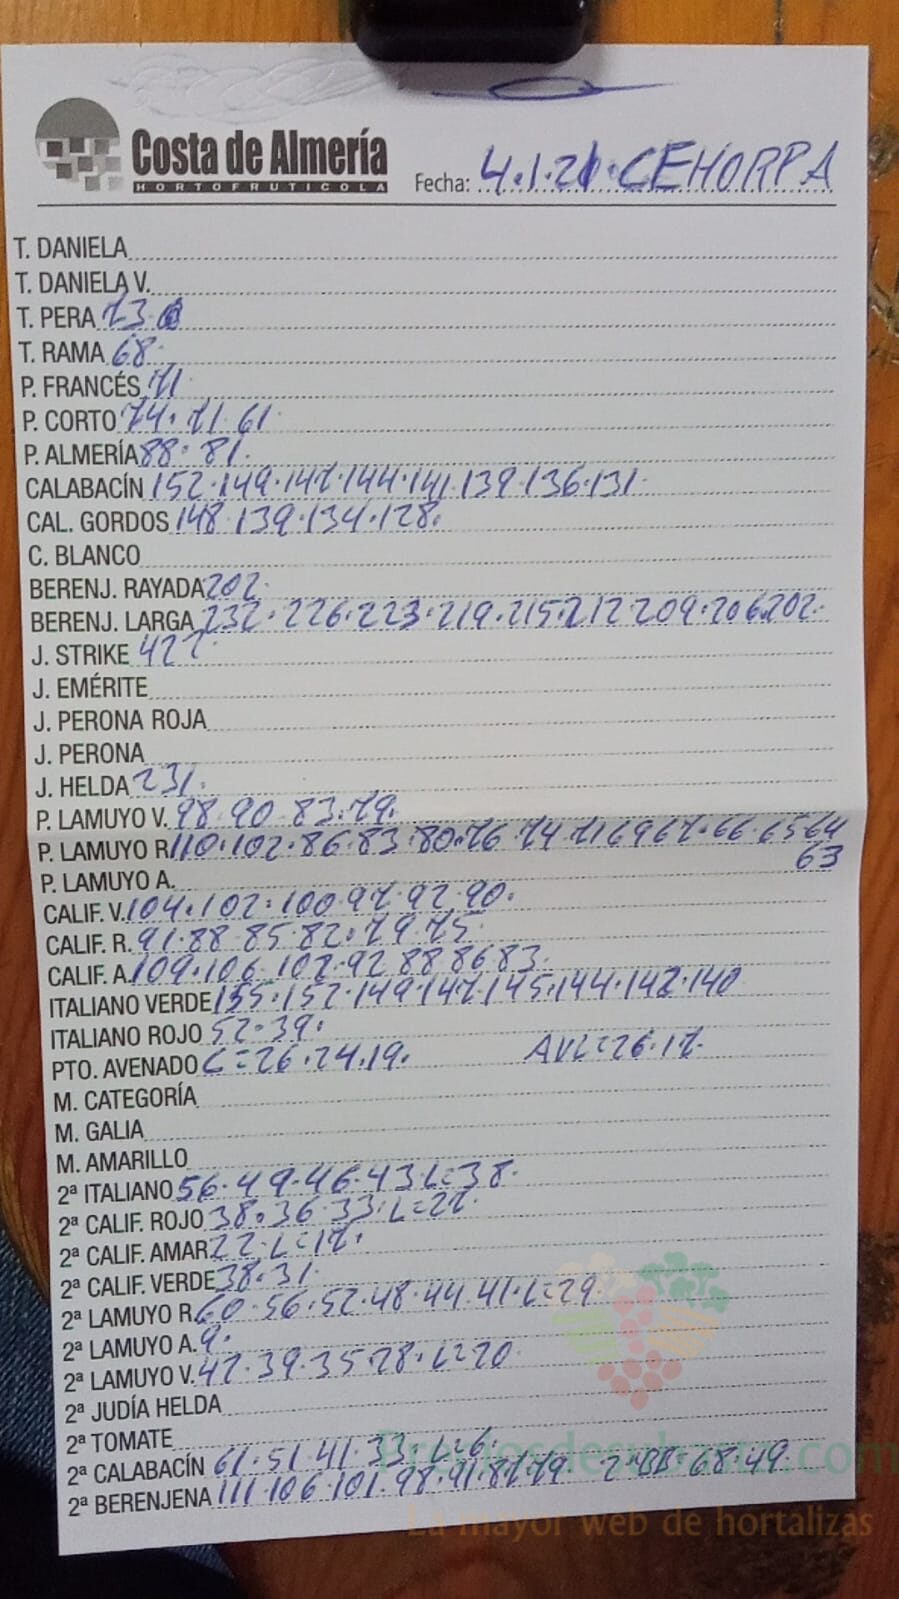 Costa de Almería
HORTOFRUTICOLA
Fecha: 4.1.21. CEHORPA
T. DANIELA
T. DANIELA V.
T. PERA 73
T. RAMA 68.
P. FRANCÉS 71
P. CORTO 74. 71. 61
P. ALMERÍA 88. 81.
CALABACÍN 152.149.147.144.141.139.136.131.
CAL. GORDOS 148.139.134.128.
C. BLANCO
BERENJ. RAYADA 202.
BERENJ. LARGA 232.226.223.219.215.212 209.206.202.
J. STRIKE 427
J. EMÉRITE
J. PERONA ROJA
J. PERONA
J. HELDA 231.
P. LAMUYO V. 98.90.83.79.
P. LAMUYO R. 110.102.86.83.80.76.74.71 69 67.66.65 64
63
P. LAMUYO A.
CALIF. V. 104.102.100.97.92.90.
CALIF. R. 91.88.85.82.79.75.
CALIF. A. 109.106.102.92 88 86 83.
ITALIANO VERDE 155.152.149.147.145.144.142.140
ITALIANO ROJO 52.39.
PTO. AVENADO L=26.24.19. AVL=26.17.
M. CATEGORÍA
M. GALIA
M. AMARILLO
2ª ITALIANO 56.49.46.43 L=38.
2ª CALIF. ROJO 38.36.33.L=27.
2ª CALIF. AMAR. 22.L=17.
2ª CALIF. VERDE 38.31.
2ª LAMUYO R. 60.56.52.48.44.41.L=29.
2ª LAMUYO A. 9.
2ª LAMUYO V. 42.39.35.28.L=20
2ª JUDÍA HELDA
2ª TOMATE
2ª CALABACÍN 61.51.41.33.L=6.
2ª BERENJENA 111.106.101.98.91.87.79 2ªBR.68.49.
Preciosdesubasta.com
La mayor web de hortalizas